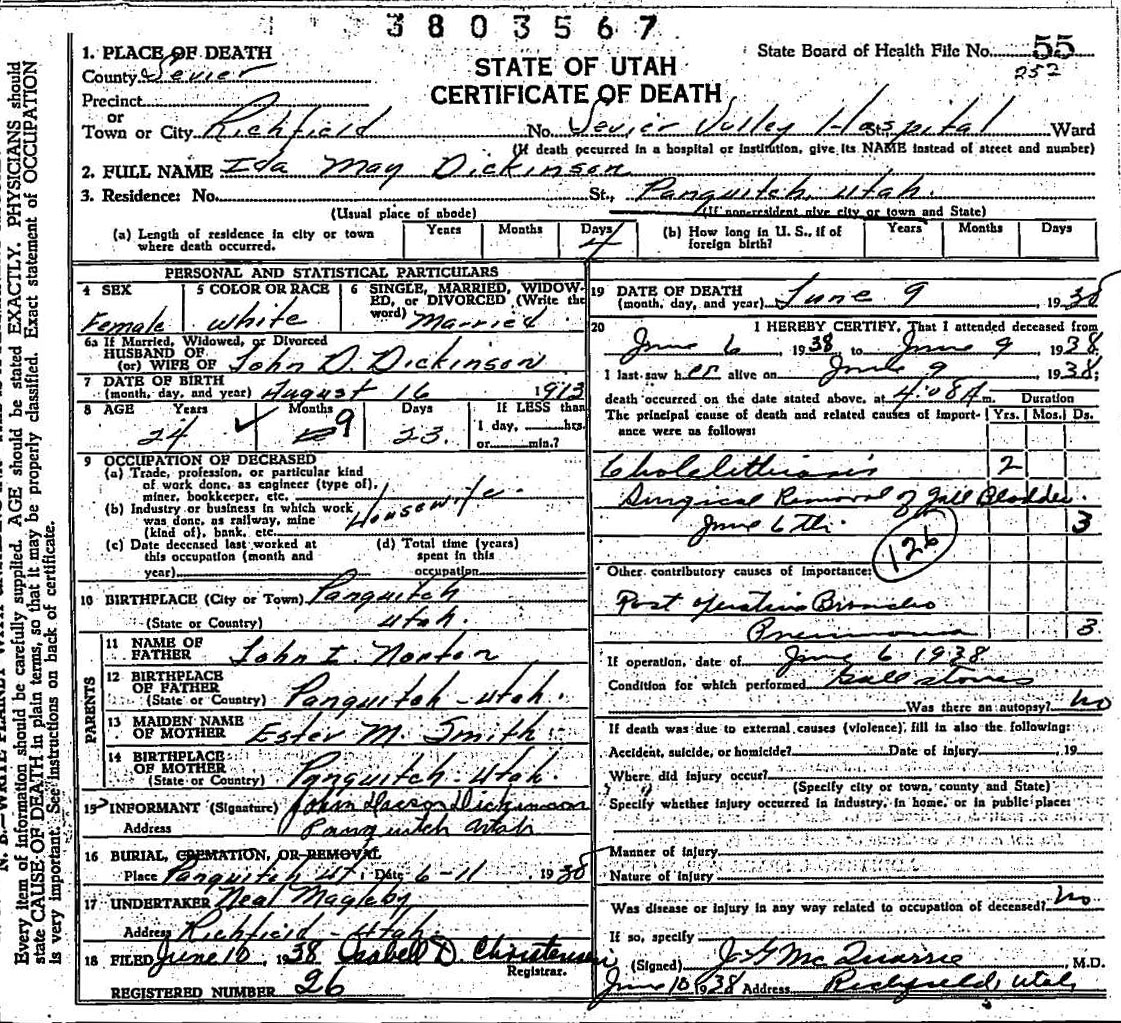 3803567
1. PLACE OF DEATH
County Sevier
State Board of Health File No. 55
252
STATE OF UTAH
CERTIFICATE OF DEATH
Precinct
or
Town or City Richfield No. Sevier Valley Hospital St. Ward
(If death occurred in a hospital or institution, give its NAME instead of street and number)
2. FULL NAME Ida May Dickinson
3. Residence: No. St., Panguitch, Utah.
(Usual place of abode) (If non-resident give city or town and State)
(a) Length of residence in city or town where death occurred. Years Months Days 4 (b) How long in U. S., if of foreign birth? Years Months Days
PERSONAL AND STATISTICAL PARTICULARS
4 SEX Female
5 COLOR OR RACE white
6 SINGLE, MARRIED, WIDOWED, or DIVORCED (Write the word) Married
6a If Married, Widowed, or Divorced
HUSBAND OF
(or) WIFE OF John D. Dickinson
7 DATE OF BIRTH
(month, day, and year) August 16 1913
8 AGE Years Months Days If LESS than
24 9 23 1 day, hrs.
or min.?
9 OCCUPATION OF DECEASED
(a) Trade, profession, or particular kind
of work done, as engineer (type of),
miner, bookkeeper, etc.
Housewife
(b) Industry or business in which work
was done, as railway, mine
(kind of), bank, etc.
(c) Date deceased last worked at
this occupation (month and
year)
(d) Total time (years)
spent in this
occupation
10 BIRTHPLACE (City or Town) Panguitch
(State or Country) Utah.
PARENTS
11 NAME OF
FATHER John I. Norton
12 BIRTHPLACE
OF FATHER
(State or Country) Panguitch - Utah.
13 MAIDEN NAME
OF MOTHER Ester M. Smith
14 BIRTHPLACE
OF MOTHER
(State or Country) Panguitch - Utah.
15 INFORMANT (Signature) John Dickinson
Address Panguitch Utah
16 BURIAL, CREMATION, OR REMOVAL
Place Panguitch Ut. Date 6-11, 1938
17 UNDERTAKER Neal Magleby
Address Richfield - Utah
18 FILED June 10, 1938 Isabell D. Christensen
Registrar.
REGISTERED NUMBER 26
19 DATE OF DEATH
(month, day, and year) June 9, 1938
20 I HEREBY CERTIFY, That I attended deceased from
June 6, 1938 to June 9, 1938
I last saw her alive on June 9, 1938;
death occurred on the date stated above, at 4:08 A m. Duration
The principal cause of death and related causes of importance were as follows: Yrs. Mos. Ds.
Cholelithiasis 2
Surgical Removal of Gall Bladder.
June 6th. 3
126
Other contributory causes of importance:
Post operative Broncho
Pneumonia 3
If operation, date of June 6 1938
Condition for which performed Gall stones
Was there an autopsy? No
If death was due to external causes (violence), fill in also the following:
Accident, suicide, or homicide? Date of injury 19
Where did injury occur?
(Specify city or town, county and State)
Specify whether injury occurred in industry, in home, or in public place:
Manner of injury
Nature of injury
Was disease or injury in any way related to occupation of deceased? No
If so, specify
(Signed) J. G. McQuarrie M.D.
June 10 1938 Address Richfield, Utah
Every item of information should be carefully supplied. AGE should be stated EXACTLY. PHYSICIANS should
state CAUSE OF DEATH in plain terms, so that it may be properly classified. Exact statement of OCCUPATION
is very important. See instructions on back of certificate.